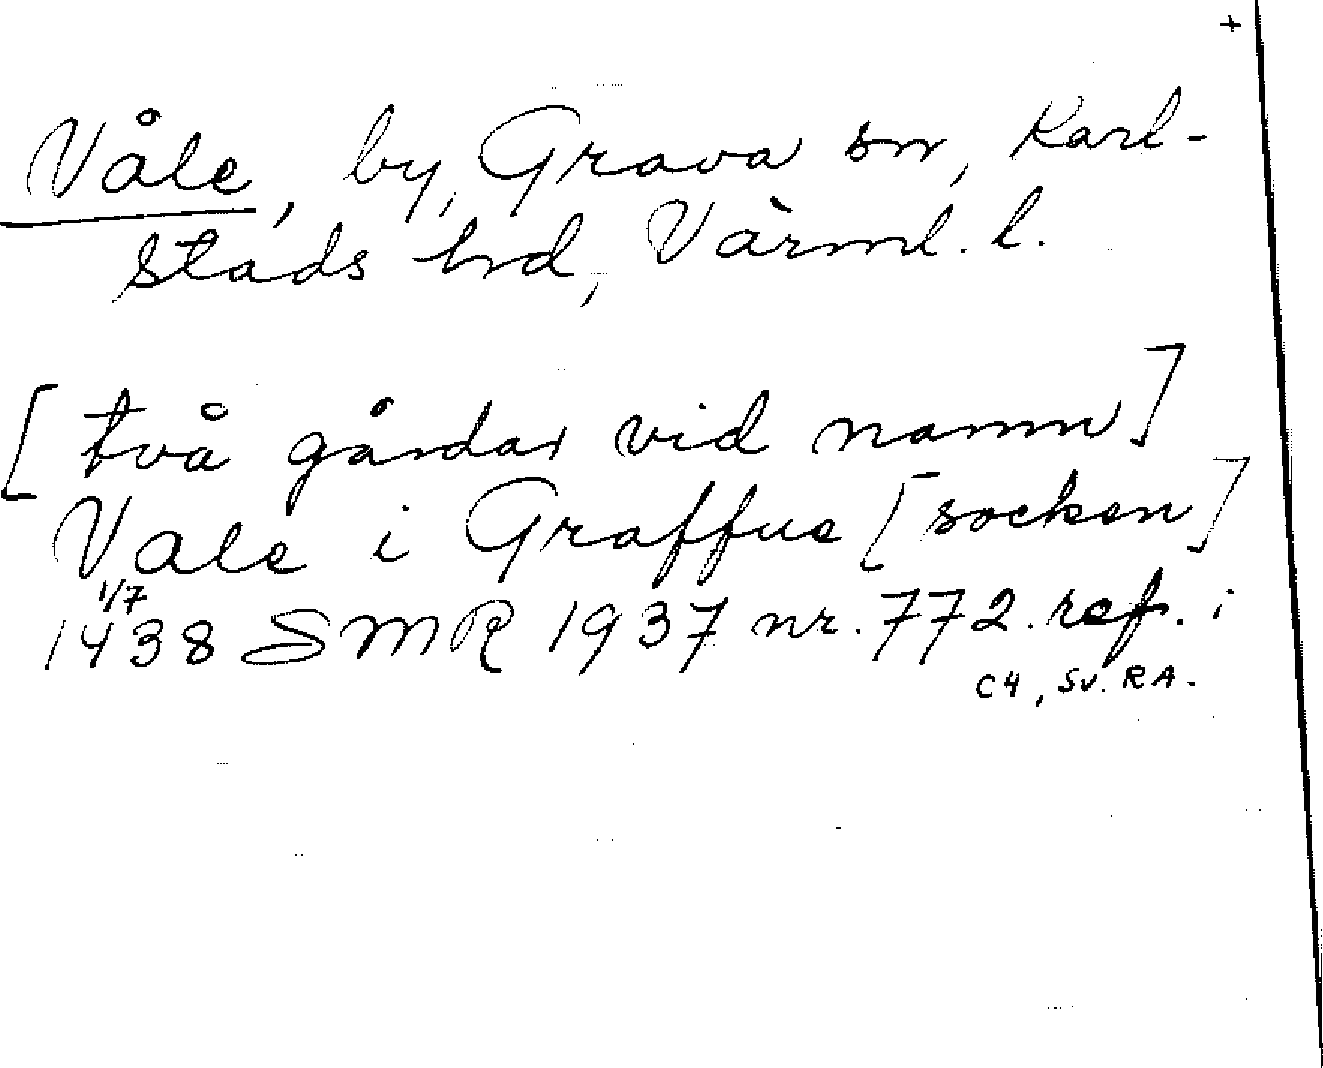 +
Våle, by, Grava sn, Karl-
stads hd, Värml. l.
[två gårdar vid namn]
Vale i Graffue [socken]
1/7
1438 SMR 1937 nr. 772. ref. i
C4, Sv. RA.